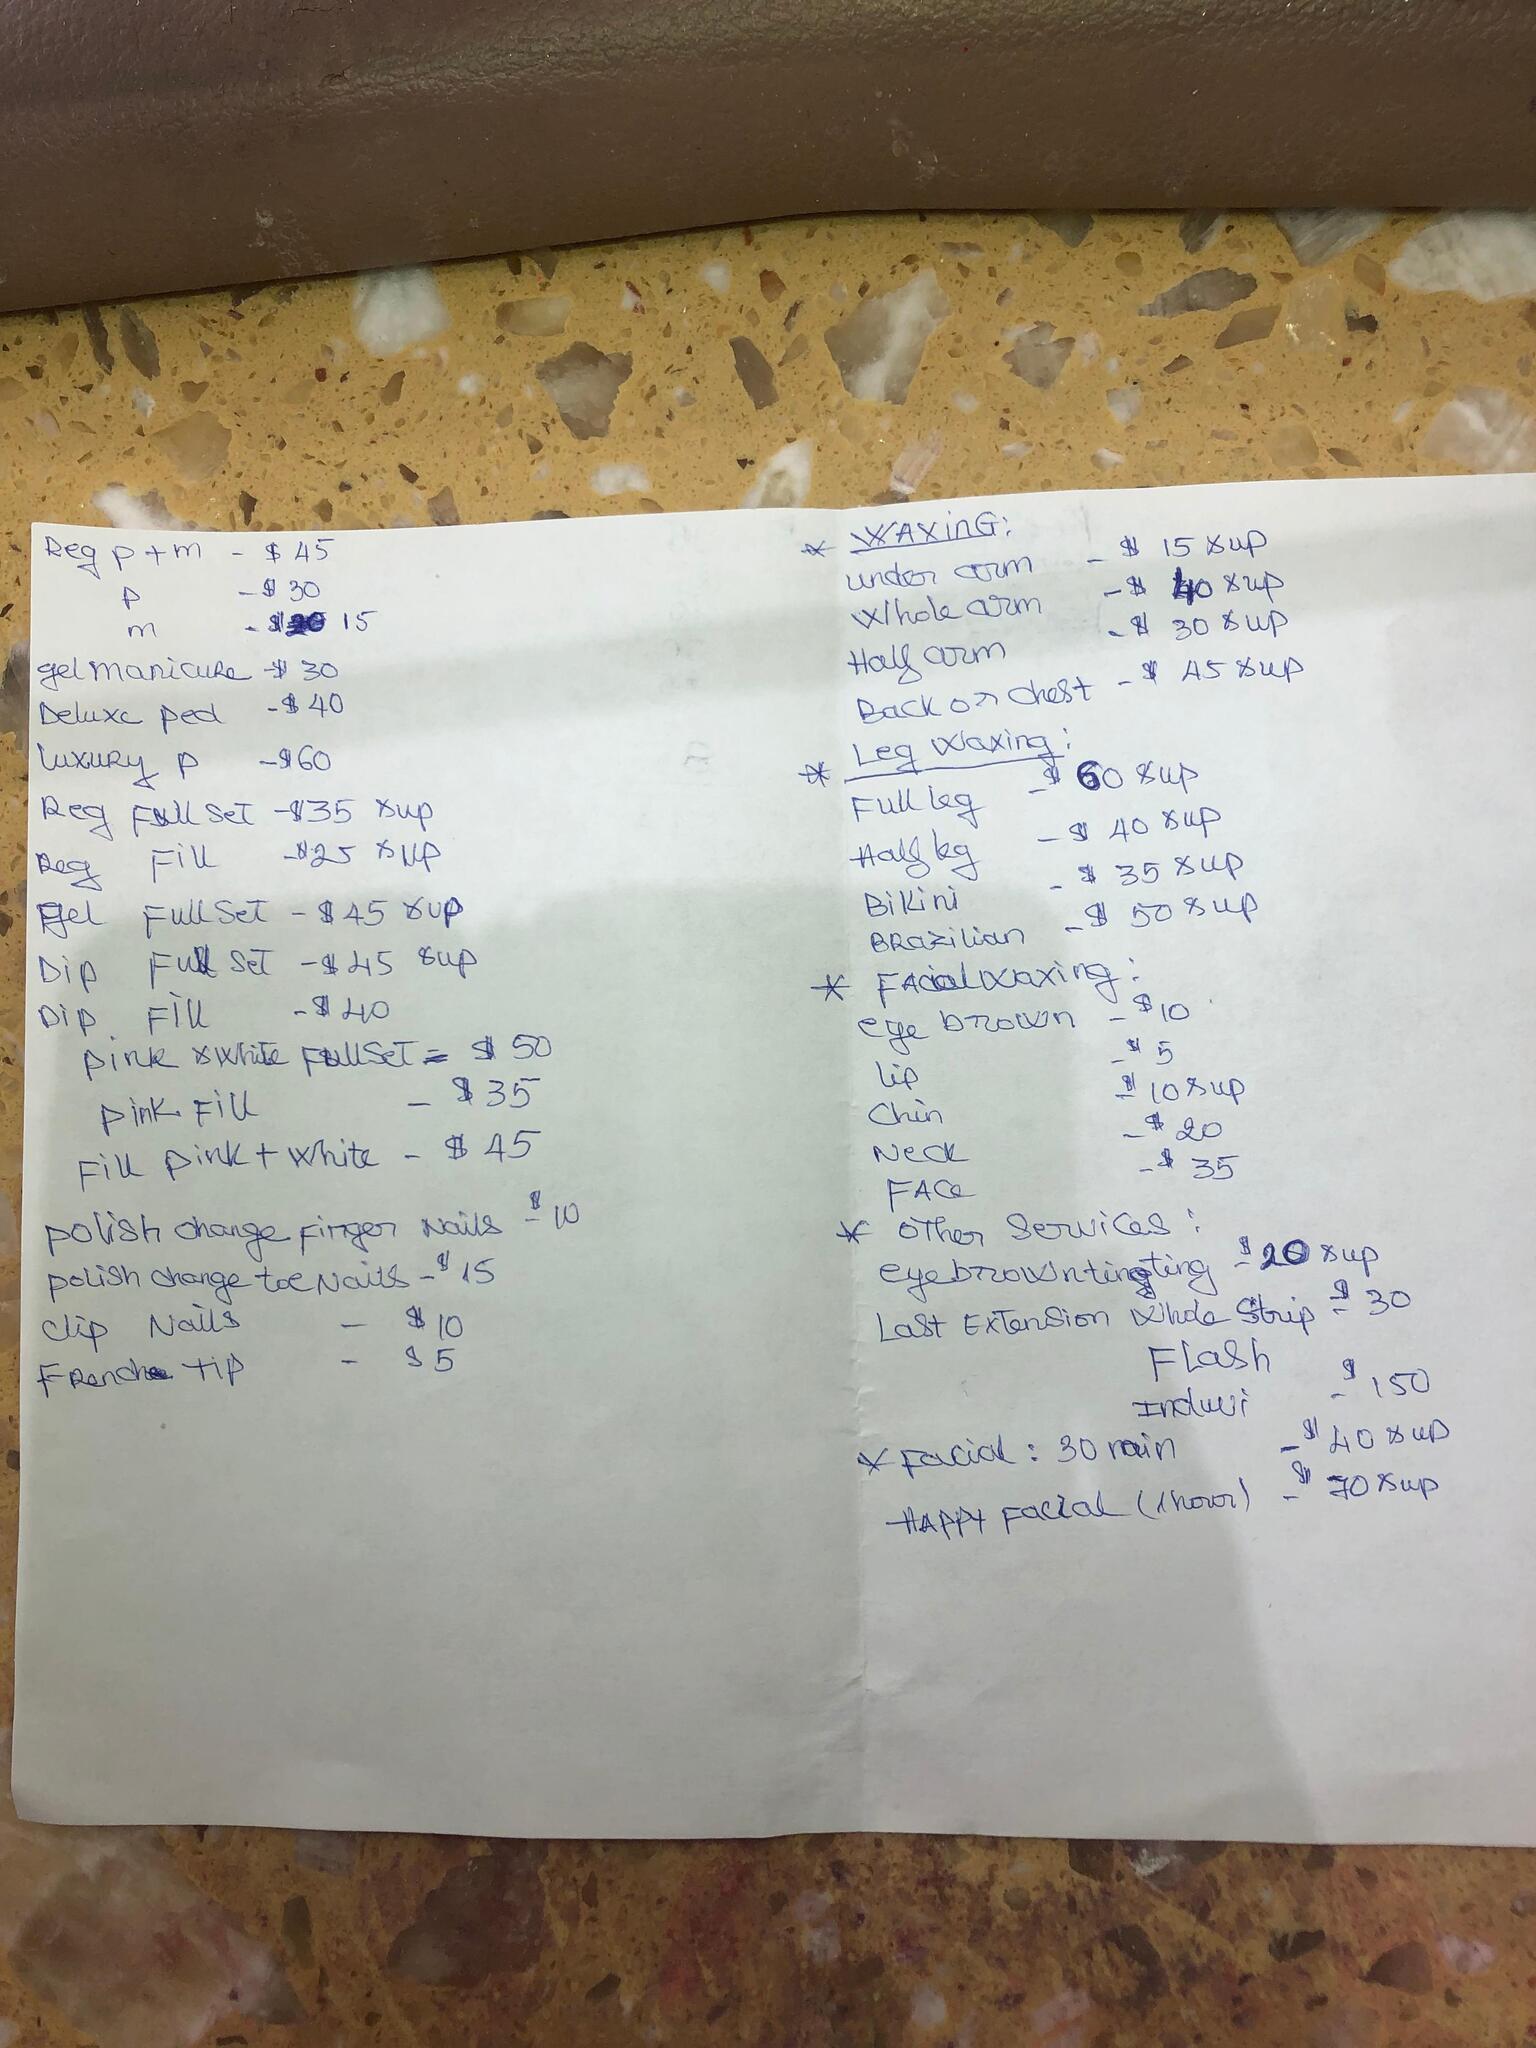 Reg p + m - $ 45
p - $ 30
m - $ 15
gel manicure - $ 30
Deluxe ped - $ 40
luxury p - $60
Reg Full Set - $35 & up
Reg Fill - $25 & up
gel Full Set - $ 45 & up
Dip Full Set - $ 45 & up
Dip Fill - $ 40
pink & white Full Set = $ 50
pink Fill - $ 35
Fill pink + white - $ 45
polish change Finger Nails - $ 10
polish change toe Nails - $ 15
clip Nails - $ 10
French tip - $ 5
* WAXING:
under arm - $ 15 & up
Whole arm - $ 40 & up
Half arm - $ 30 & up
Back or chest - $ 45 & up
* Leg Waxing:
Full leg - $ 60 & up
Half leg - $ 40 & up
Bikini - $ 35 & up
BRazilian - $ 50 & up
* Facial waxing:
eye brown - $ 10
lip - $ 5
Chin - $ 10 & up
Neck - $ 20
FAce - $ 35
* OTHer Services:
eyebrown ting - $ 20 & up
Last Extension Whole Strip - $ 30
Flash
Induvi - $ 150
* Facial: 30 min - $ 40 & up
HAPPY Facial (1 hour) - $ 70 & up